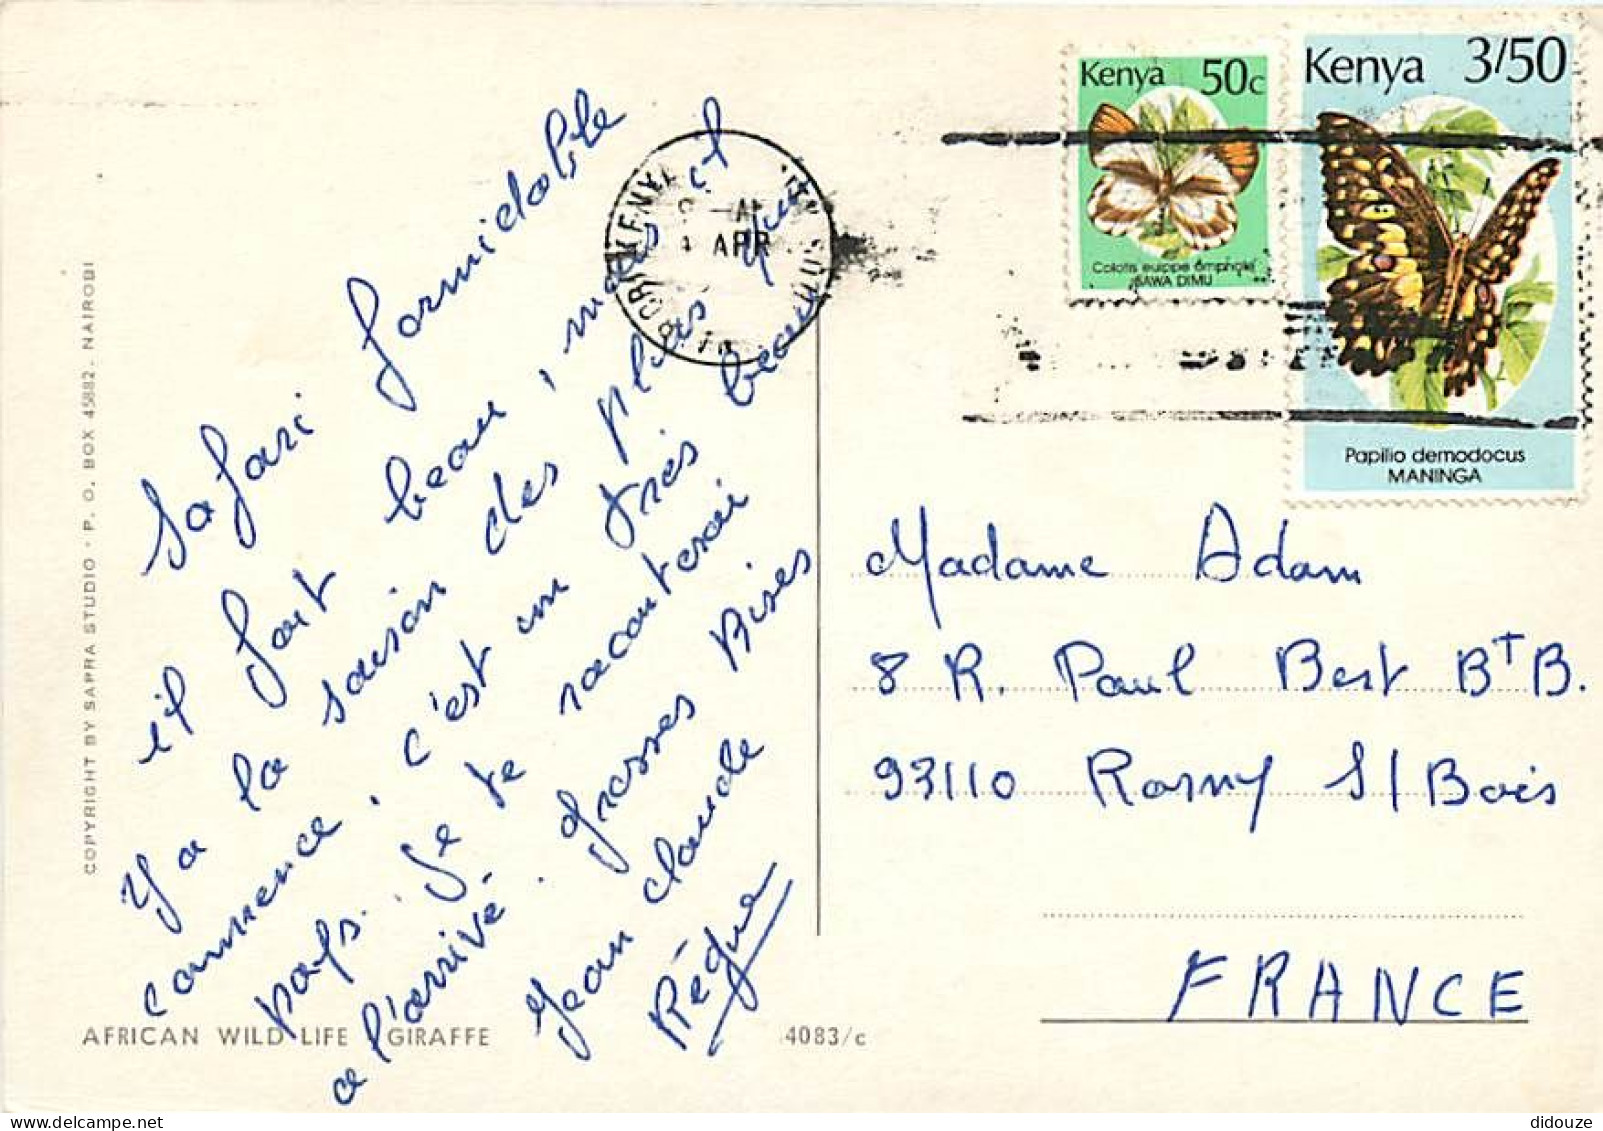 Kenya 50c
Colotis euippe omphale
SAWA DIMU
Kenya 3/50
Papilio demodocus
MANINGA
KENYA
APR
Safari formidable
il fait beau, mais
y a la saison des pluies qui
commence. c'est un très beau
pays. Je te raconterai
a l'arrivé. Grosses Bises
Jean claude
Madame Adam
8 R. Paul Best Bᵀ B.
93110 Rosny S/Bois
FRANCE
COPYRIGHT BY SAPRA STUDIO · P. O. BOX 45882. NAIROBI
AFRICAN WILD LIFE GIRAFFE
4083/c
didouze